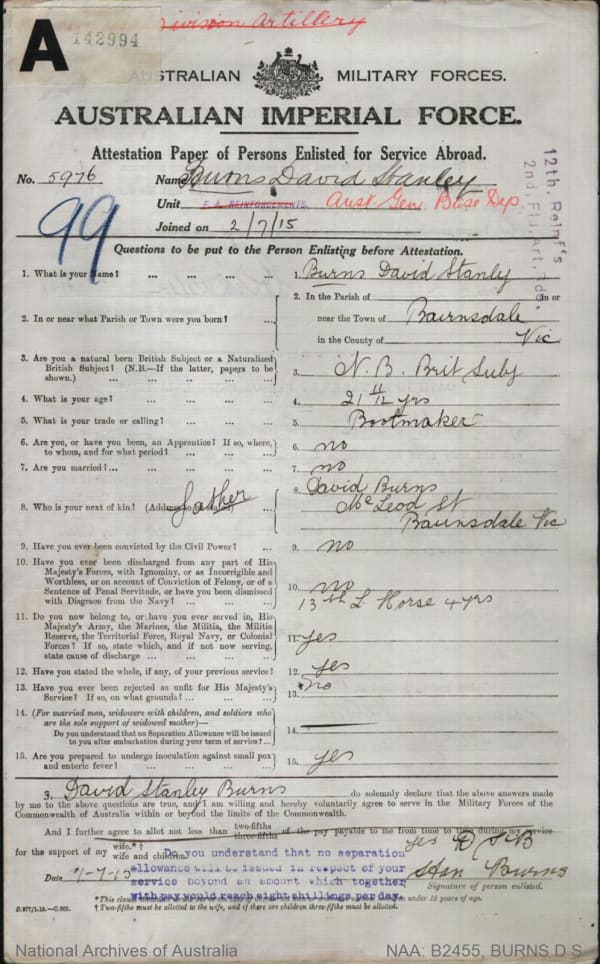 A
142994
Division Artillery
AUSTRALIAN MILITARY FORCES.
AUSTRALIAN IMPERIAL FORCE.
Attestation Paper of Persons Enlisted for Service Abroad.
12th. Reinf's
2nd. Fld. Art. Bde.
No. 5976 Name Burns David Stanley
Unit F.A. REINFORCEMENTS. Aust Gen Base Dep
Joined on 2/7/15
99
Questions to be put to the Person Enlisting before Attestation.
1. What is your Name? ... ... ... ... 1. Burns David Stanly
2. In or near what Parish or Town were you born? ... 2. In the Parish of in or
near the Town of Bairnsdale
in the County of Vic
3. Are you a natural born British Subject or a Naturalized
British Subject? (N.B.—If the latter, papers to be
shown.) ... ... ... ... ... 3. N. B. Brit Subj
4. What is your age? ... ... ... ... 4. 21 11/12 yrs
5. What is your trade or calling? ... ... ... 5. Bootmaker
6. Are you, or have you been, an Apprentice? If so, where,
to whom, and for what period? ... ... ... 6. no
7. Are you married?... ... ... ... ... 7. no
8. Who is your next of kin? (Address to be stated) father 8. David Burns
McLeod St
Bairnsdale Vic
9. Have you ever been convicted by the Civil Power? ... 9. no
10. Have you ever been discharged from any part of His
Majesty's Forces, with Ignominy, or as Incorrigible and
Worthless, or on account of Conviction of Felony, or of a
Sentence of Penal Servitude, or have you been dismissed
with Disgrace from the Navy? ... ... ... 10. no
13th L. Horse 4 yrs
11. Do you now belong to, or have you ever served in, His
Majesty's Army, the Marines, the Militia, the Militia
Reserve, the Territorial Force, Royal Navy, or Colonial
Forces? If so, state which, and if not now serving,
state cause of discharge ... ... ... ... 11. yes
12. Have you stated the whole, if any, of your previous service? 12. yes
13. Have you ever been rejected as unfit for His Majesty's
Service? If so, on what grounds? ... ... ... 13. no
14. (For married men, widowers with children, and soldiers who
are the sole support of widowed mother)—
Do you understand that no Separation Allowance will be issued
to you after embarkation during your term of service?... 14.
15. Are you prepared to undergo inoculation against small pox
and enteric fever? ... ... ... ... 15. yes
I, David Stanley Burns do solemnly declare that the above answers made
by me to the above questions are true, and I am willing and hereby voluntarily agree to serve in the Military Forces of the
Commonwealth of Australia within or beyond the limits of the Commonwealth.
And I further agree to allot not less than two-fifths three-fifths of the pay payable to me from time to time during my service
for the support of my wife.*†
wife and children.
yes D S B
Do you understand that no separation
allowance will be issued in respect of your
service beyond an amount which together
with pay would reach eight shillings per day.
Date 1-7-15 Stan Burns
Signature of person enlisted.
under 18 years of age.
† Two-fifths must be allotted to the wife, and if there are children three-fifths must be allotted.
National Archives of Australia
NAA: B2455, BURNS D S